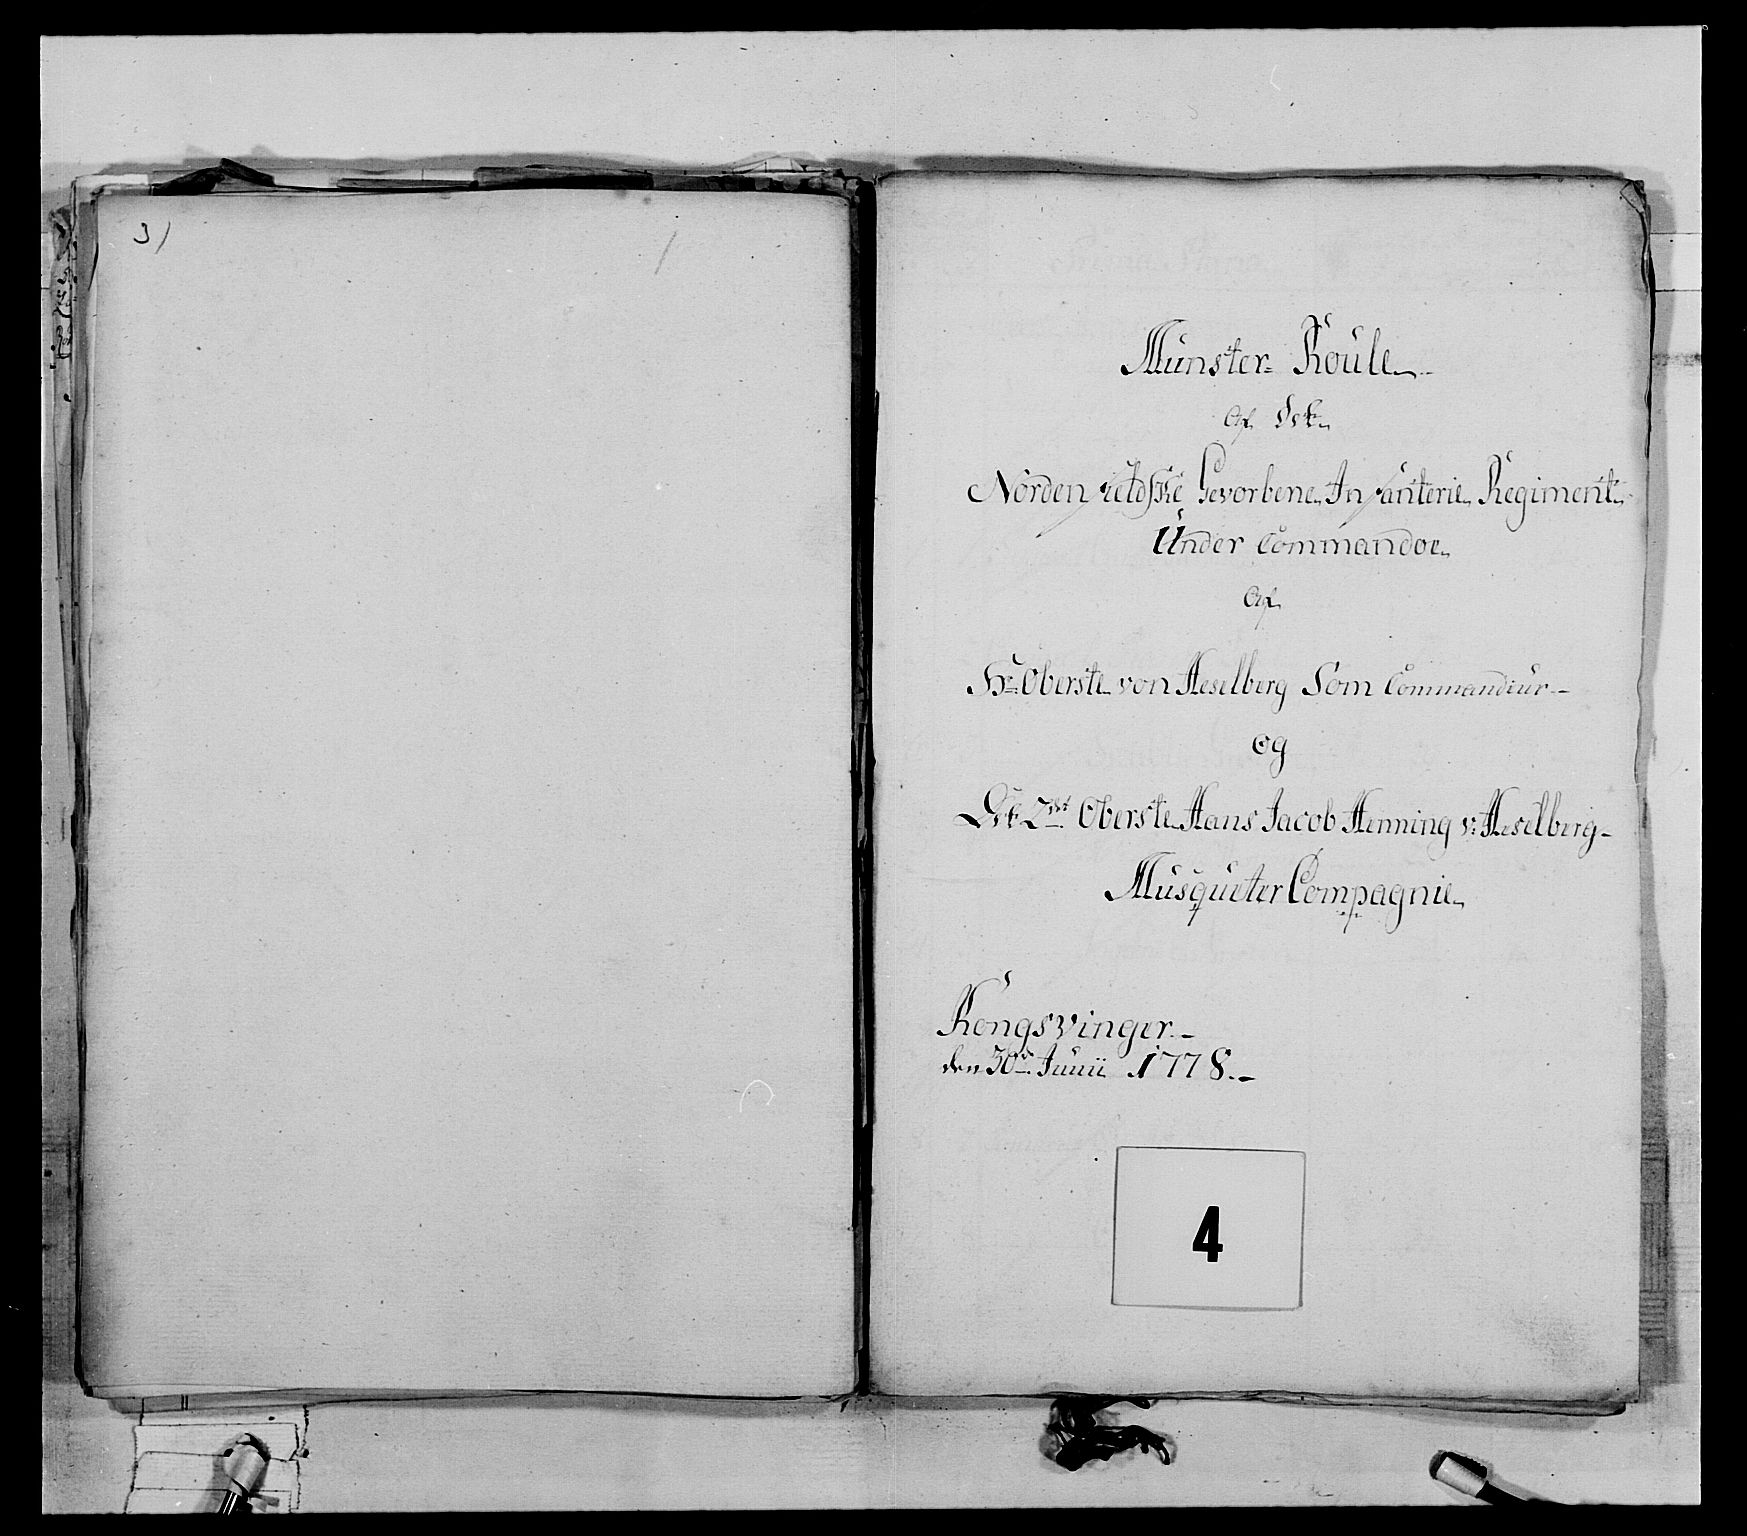 3)
Munster- Roule
Af Det
Nordenfieldske Gevorbene Infanterie Regiment
Under Commandoe
Af
Hr: Oberste von Heselberg Som Commandeur
og
Det 2det Oberste Hans Jacob Henning v: Heselberg
Musqueter Compagnie
Kongsvinger
den 30te Junii 1778.
4